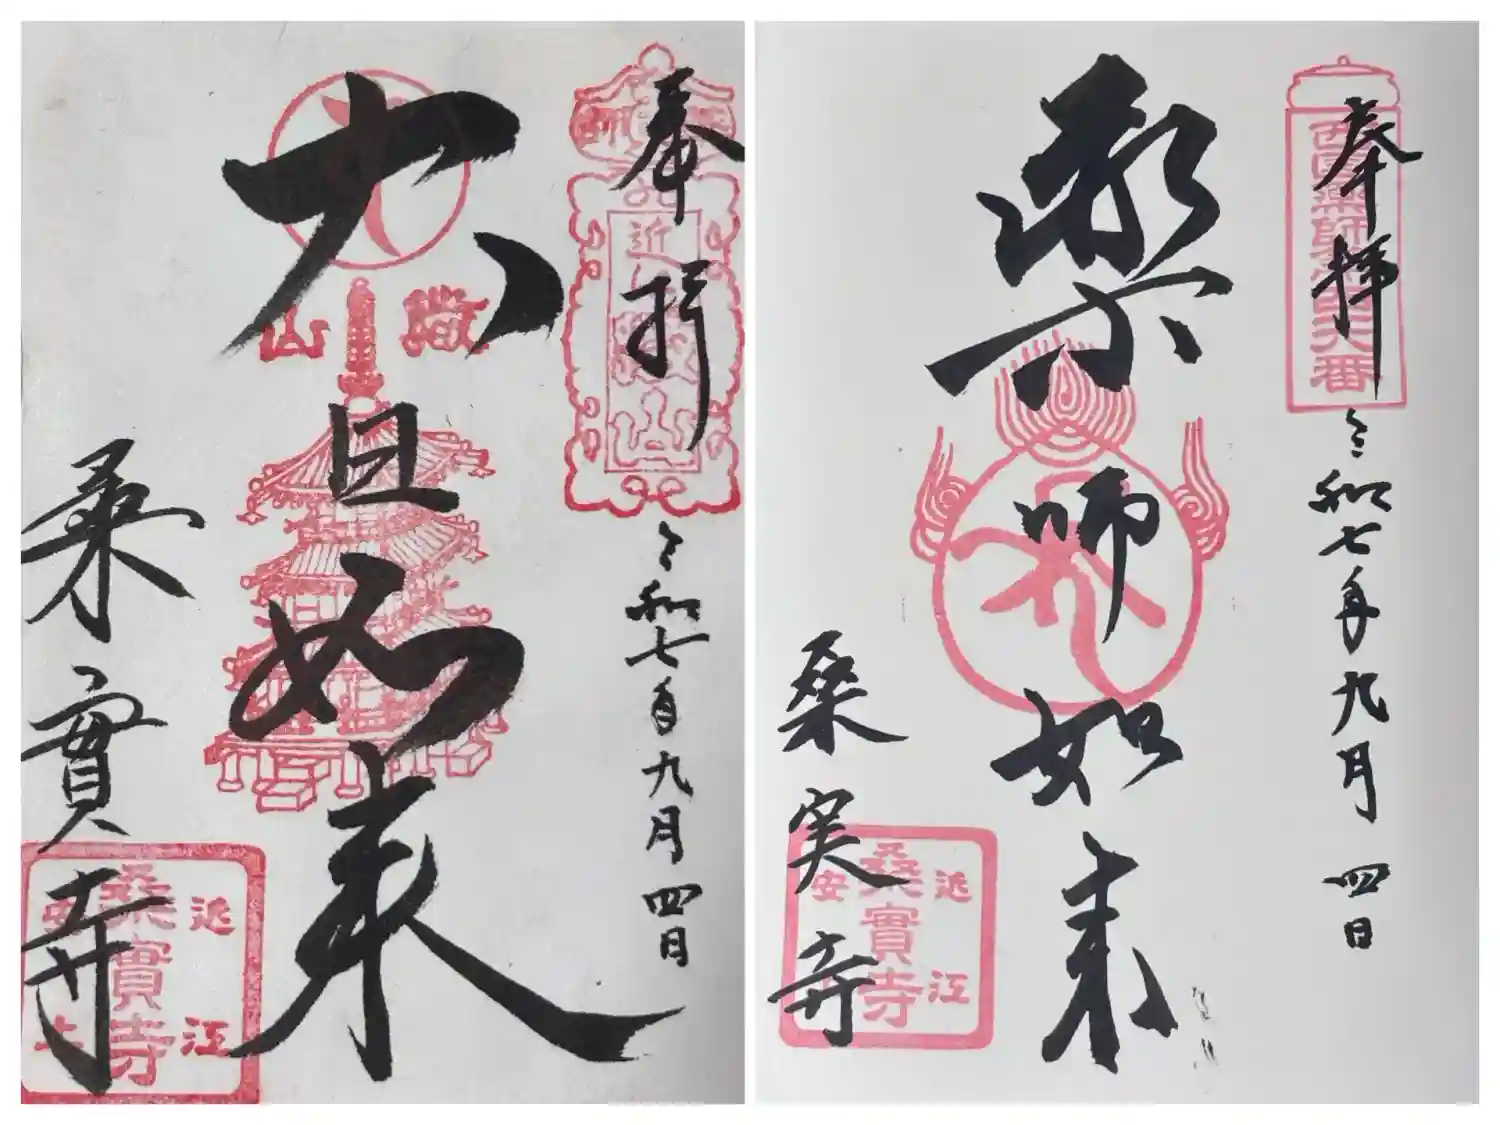 奉拝
令和七年九月四日
繖山
大日如来
桑實寺
近江
桑實寺
安土
奉拝
令和七年九月四日
薬師如来
桑実寺
近江
桑實寺
安